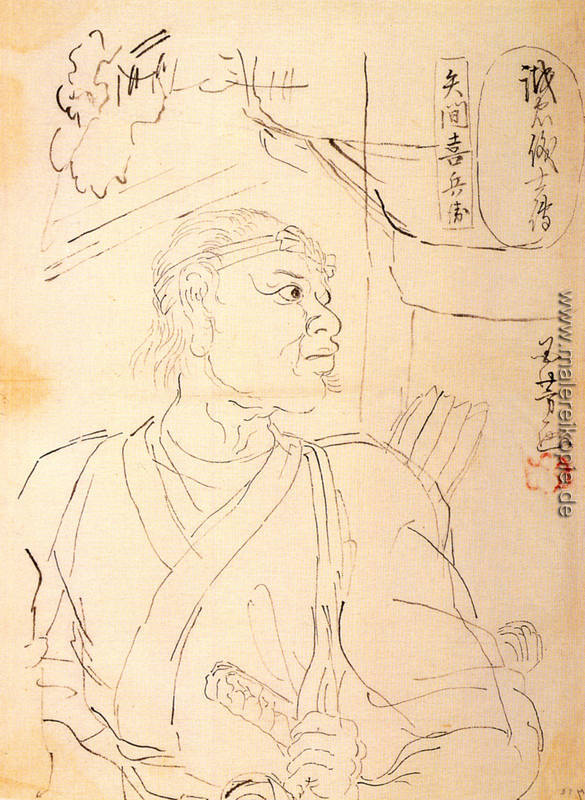 誠忠義士傳
矢間喜兵衛
国芳画
www.malereikopie.de